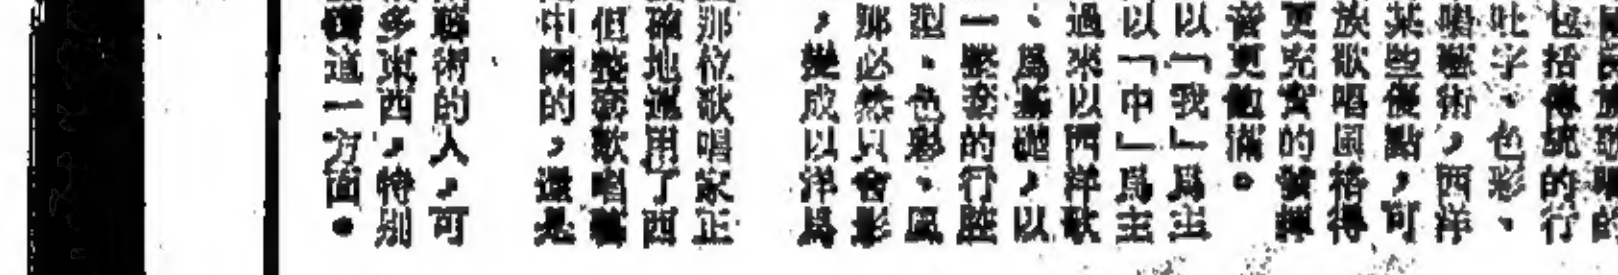 族歌唱的
包括傳統的行
吐字、色彩、
唱藝術，西洋
某些優點，可
族歌唱風格得
更充實的發揮
音更飽滿。
以「我」爲主
以「中」爲主
過來以西洋歌
、爲基礎，以
一整套的行腔
型、色彩、風
那必然只會影
，變成以洋爲
那位歌唱家正
確地運用了西
但整套歌唱藝
中國的，還是
術的人，可
多東西，特別
這一方面。